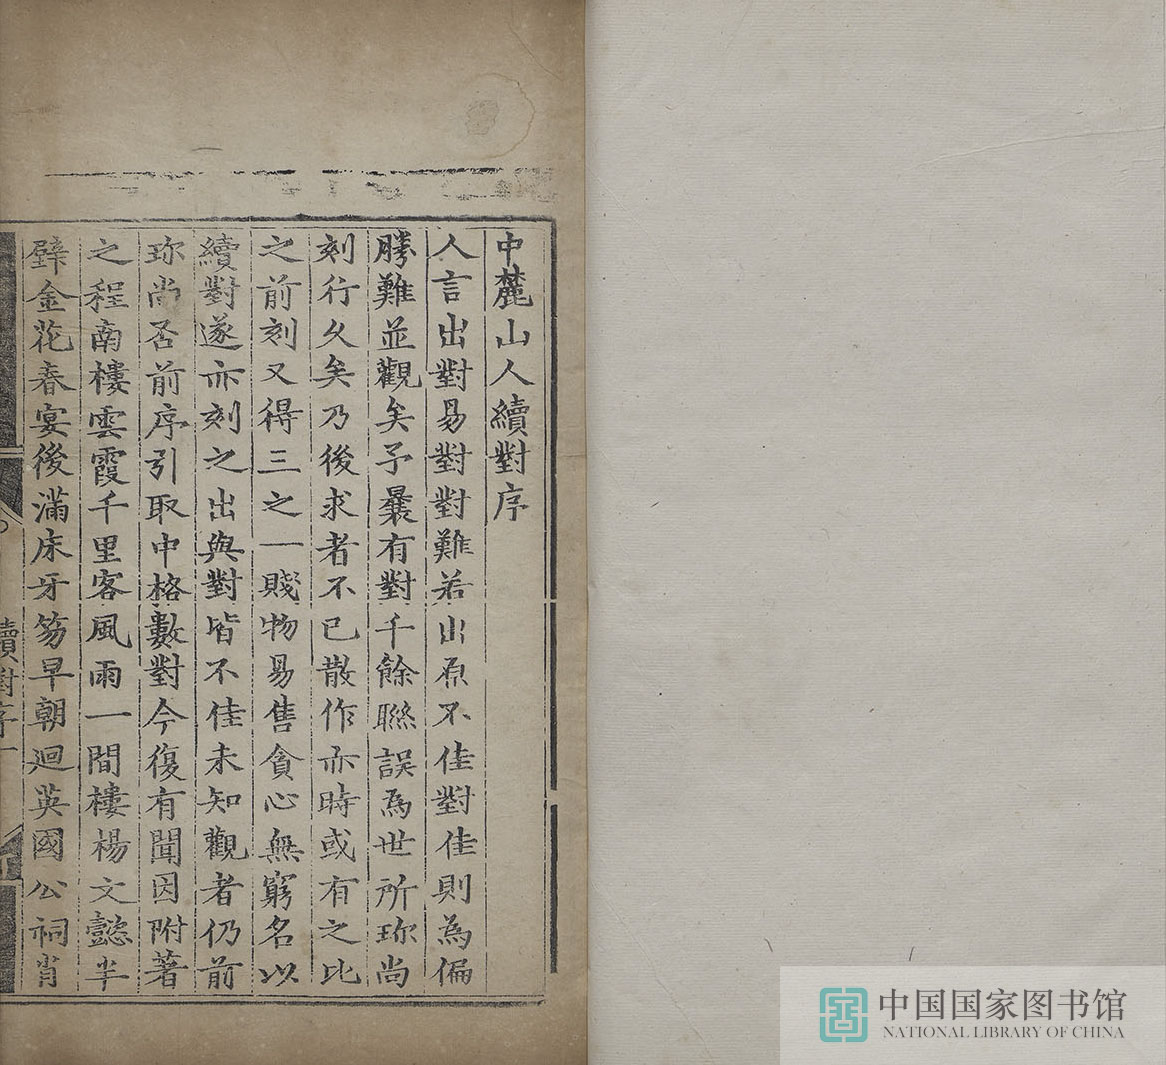 中麓山人續對序
人言出對易對對難若出原不佳對佳則為偏
勝難並觀矣予曩有對千餘聯誤為世所珎尚
刻行久矣乃後求者不已散作亦時或有之比
之前刻又得三之一賤物易售貪心無窮名以
續對遂亦刻之出與對皆不佳未知觀者仍前
珎尚否前序引取中格數對今復有聞因附著
之程南樓雲霞千里客風雨一間樓楊文懿半
壁金花春宴後滿床牙笏早朝迴英國公祠肖
續對序一
中国国家图书馆
NATIONAL LIBRARY OF CHINA